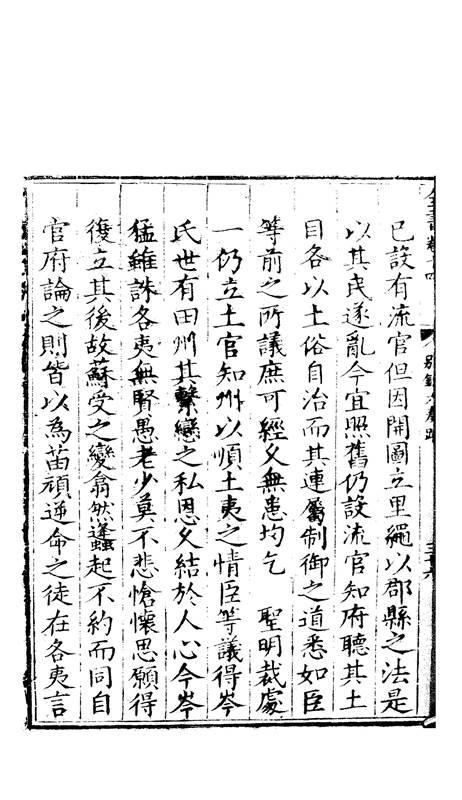 已設有流官但因開圖立里繩以郡縣之法是
以其民遂亂今宜照舊仍設流官知府聽其土
目各以土俗自治而其連屬制御之道悉如臣
等前之所議庶可經久無患均乞　聖明裁處
一仍立土官知州以順土夷之情臣等議得岑
氏世有田州其繫戀之私恩久結於人心今岑
猛雖誅各夷無賢愚老少莫不悲愴懷思願得
復立其後故蘇受之變翕然蠭起不約而同自
官府論之則皆以為苗頑逆命之徒在各夷言